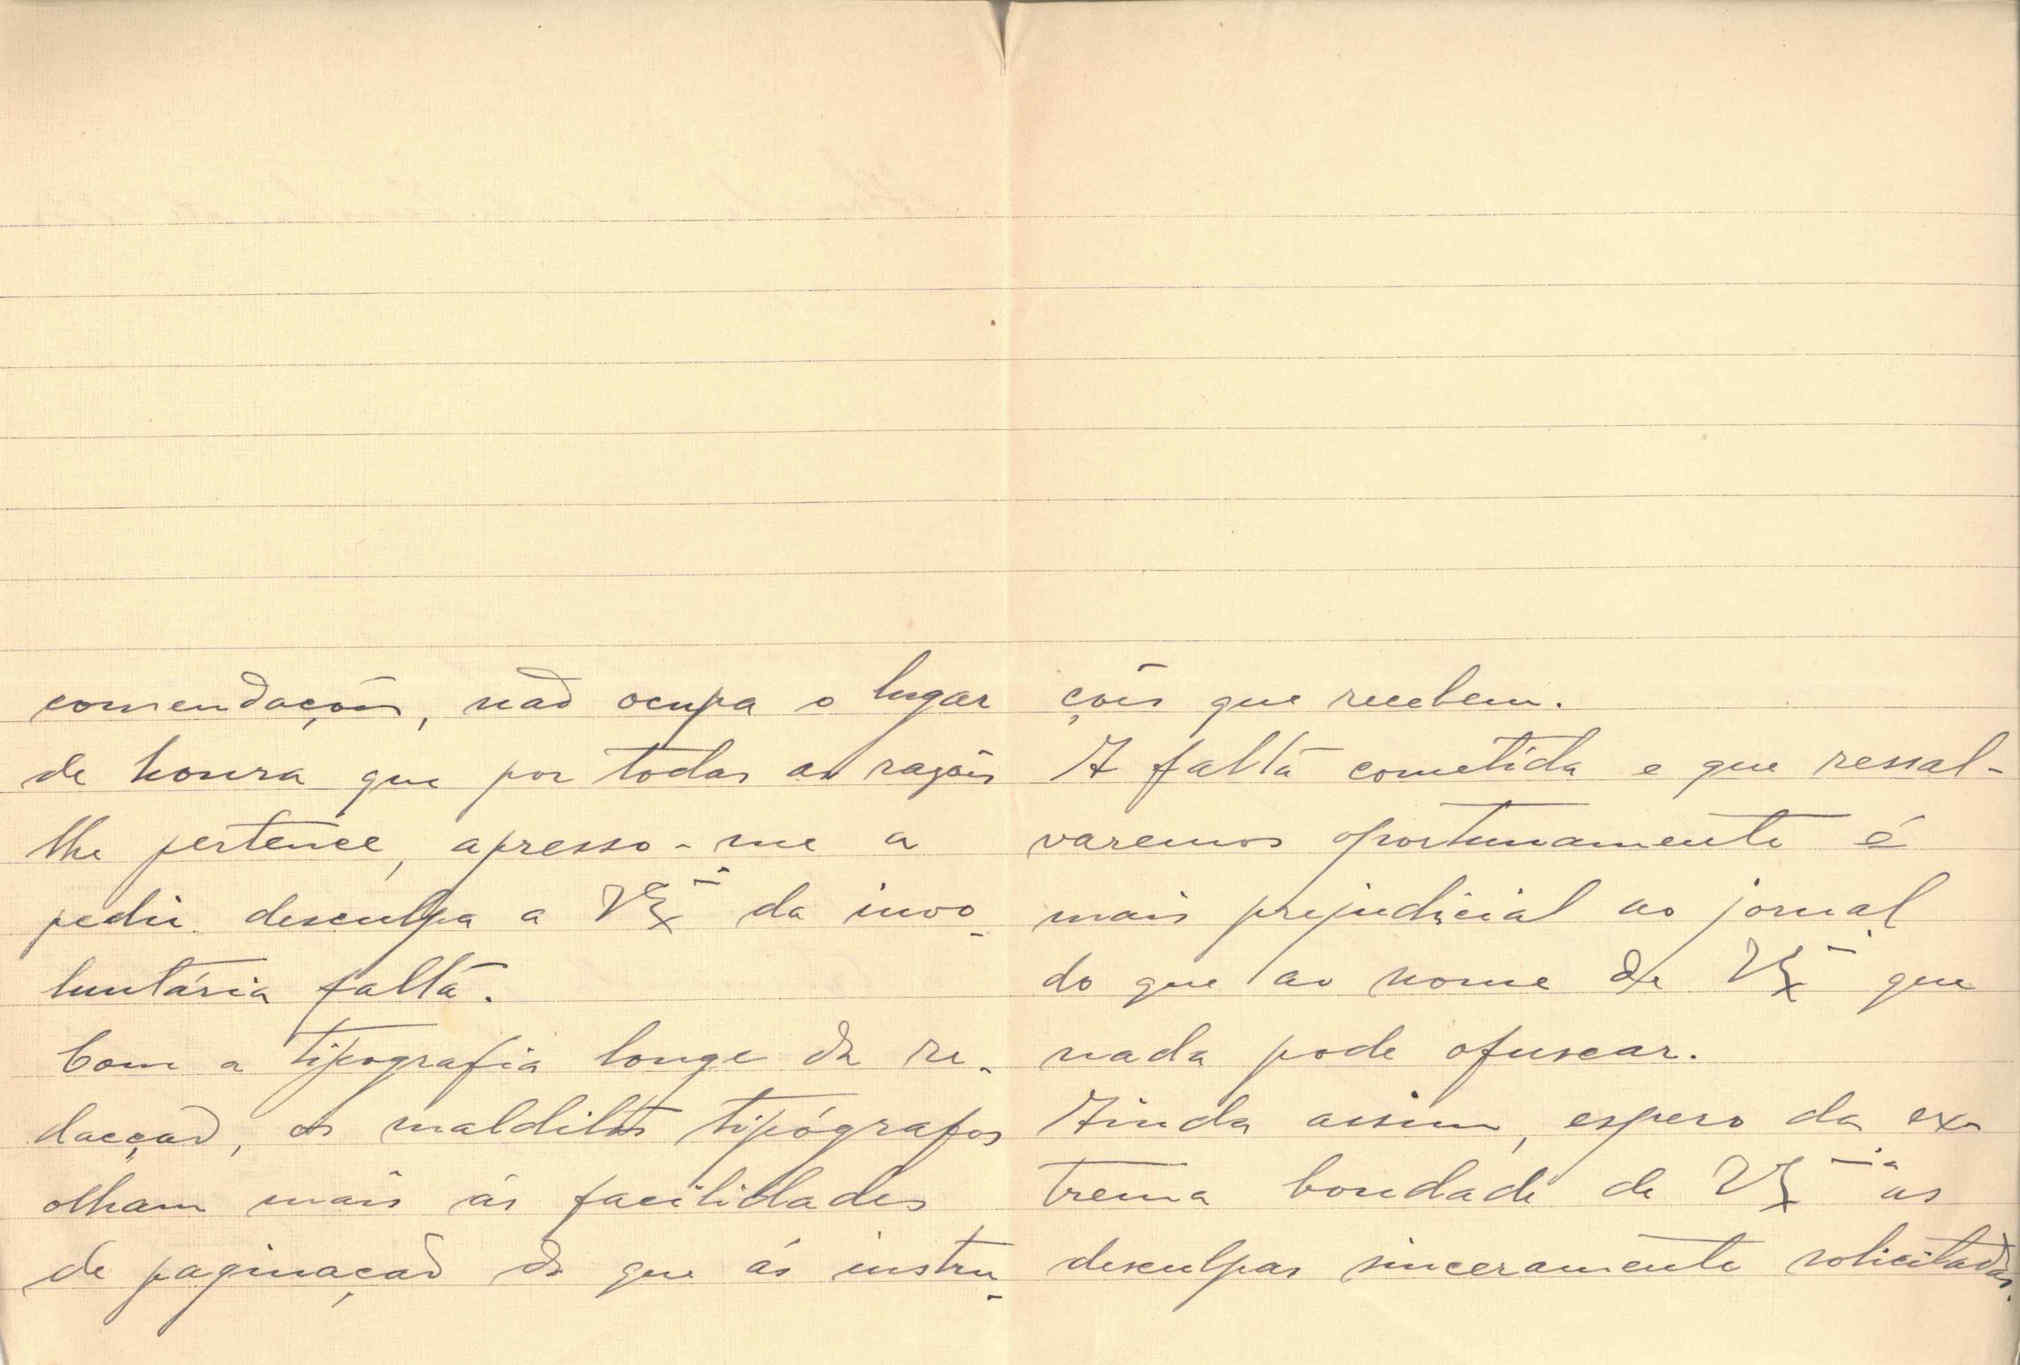 comendaçõis, não ocupa o lugar
de honra que por todas as razõis
lhe pertence, apresso-me a
pedir desculpa a V Exª da invo-
luntária falta.
Com a tipografia longe da re-
dacção, os malditos tipógrafos
olham mais ás facilidades
de paginação do que ás instru-
çõis que recebem.
A falta cometida e que ressal-
varemos oportunamente é
mais prejudicial ao jornal
do que ao nome de V Exª que
nada pode ofuscar.
Ainda assim, espero da ex-
trema bondade de V Exª as
desculpas sinceramente solicitadas.